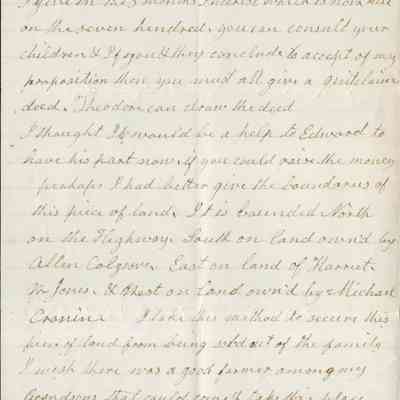 I give in the 3 months Interest which is now due
on the seven hundred. you can consult your
children & If you & they conclude to accept of my
proposition then you must all give a quitclaim
deed. Theodore can draw the deed
I thought It would be a help to Edward to
have his part now. if you could raise the money
perhaps I had better give the boundaries of
this piece of land. It is bounded North
on the Highway. South on land own'd by
Allen Colgrove. East on land of Harriet.
M Jones. & West on Land own'd by Michael
Cronin. I take this method to secure this
piece of land from being sold out of the family
I wish there was a good farmer among my
Grandsons that could come & take this place